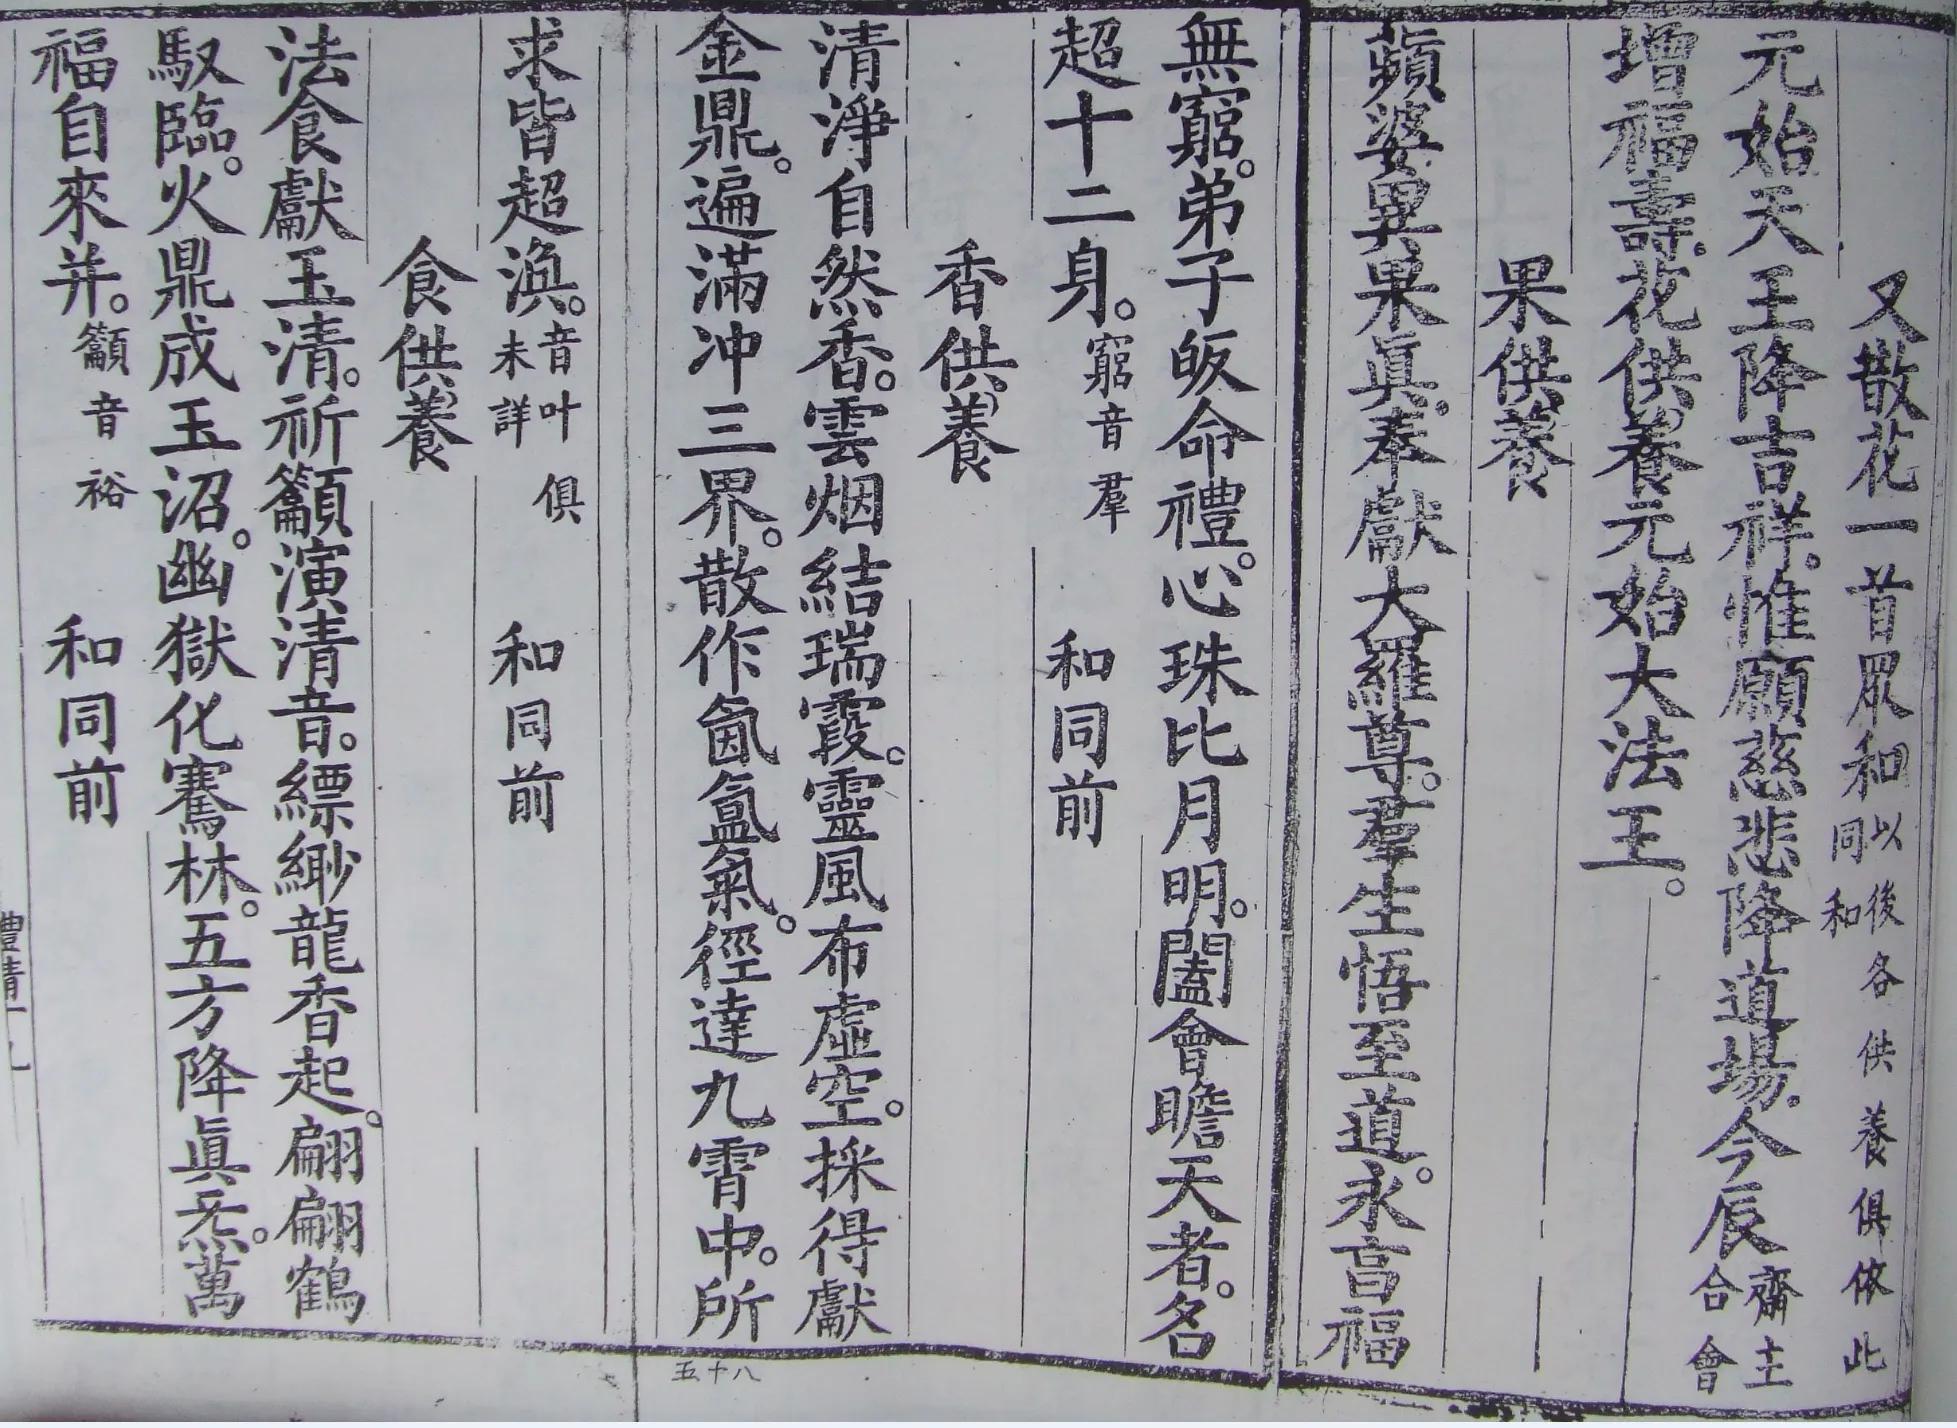 又散花一首眾和以後各供養俱依此同和
元始天王降吉祥。惟願慈悲降道場。今辰齋主合會
增福壽。花供養元始大法王。
果供養
蘋婆異果眞。奉獻大羅尊。羣生悟至道。永享福
無窮。弟子皈命禮。心珠比月明。闔會瞻天者。名
超十二身。窮音羣 和同前
香供養
清淨自然香。雲烟結瑞霞。靈風布虛空。採得獻
金鼎。遍滿冲三界。散作氤氳氣。徑達九霄中。所
求皆超渙。音叶俱未詳 和同前
食供養
法食獻玉清。祈籲演清音。縹緲龍香起。翩翩鶴
馭臨。火鼎成玉沼。幽獄化騫林。五方降眞炁。萬
福自來并。籲音裕 和同前
禮請一
五十八